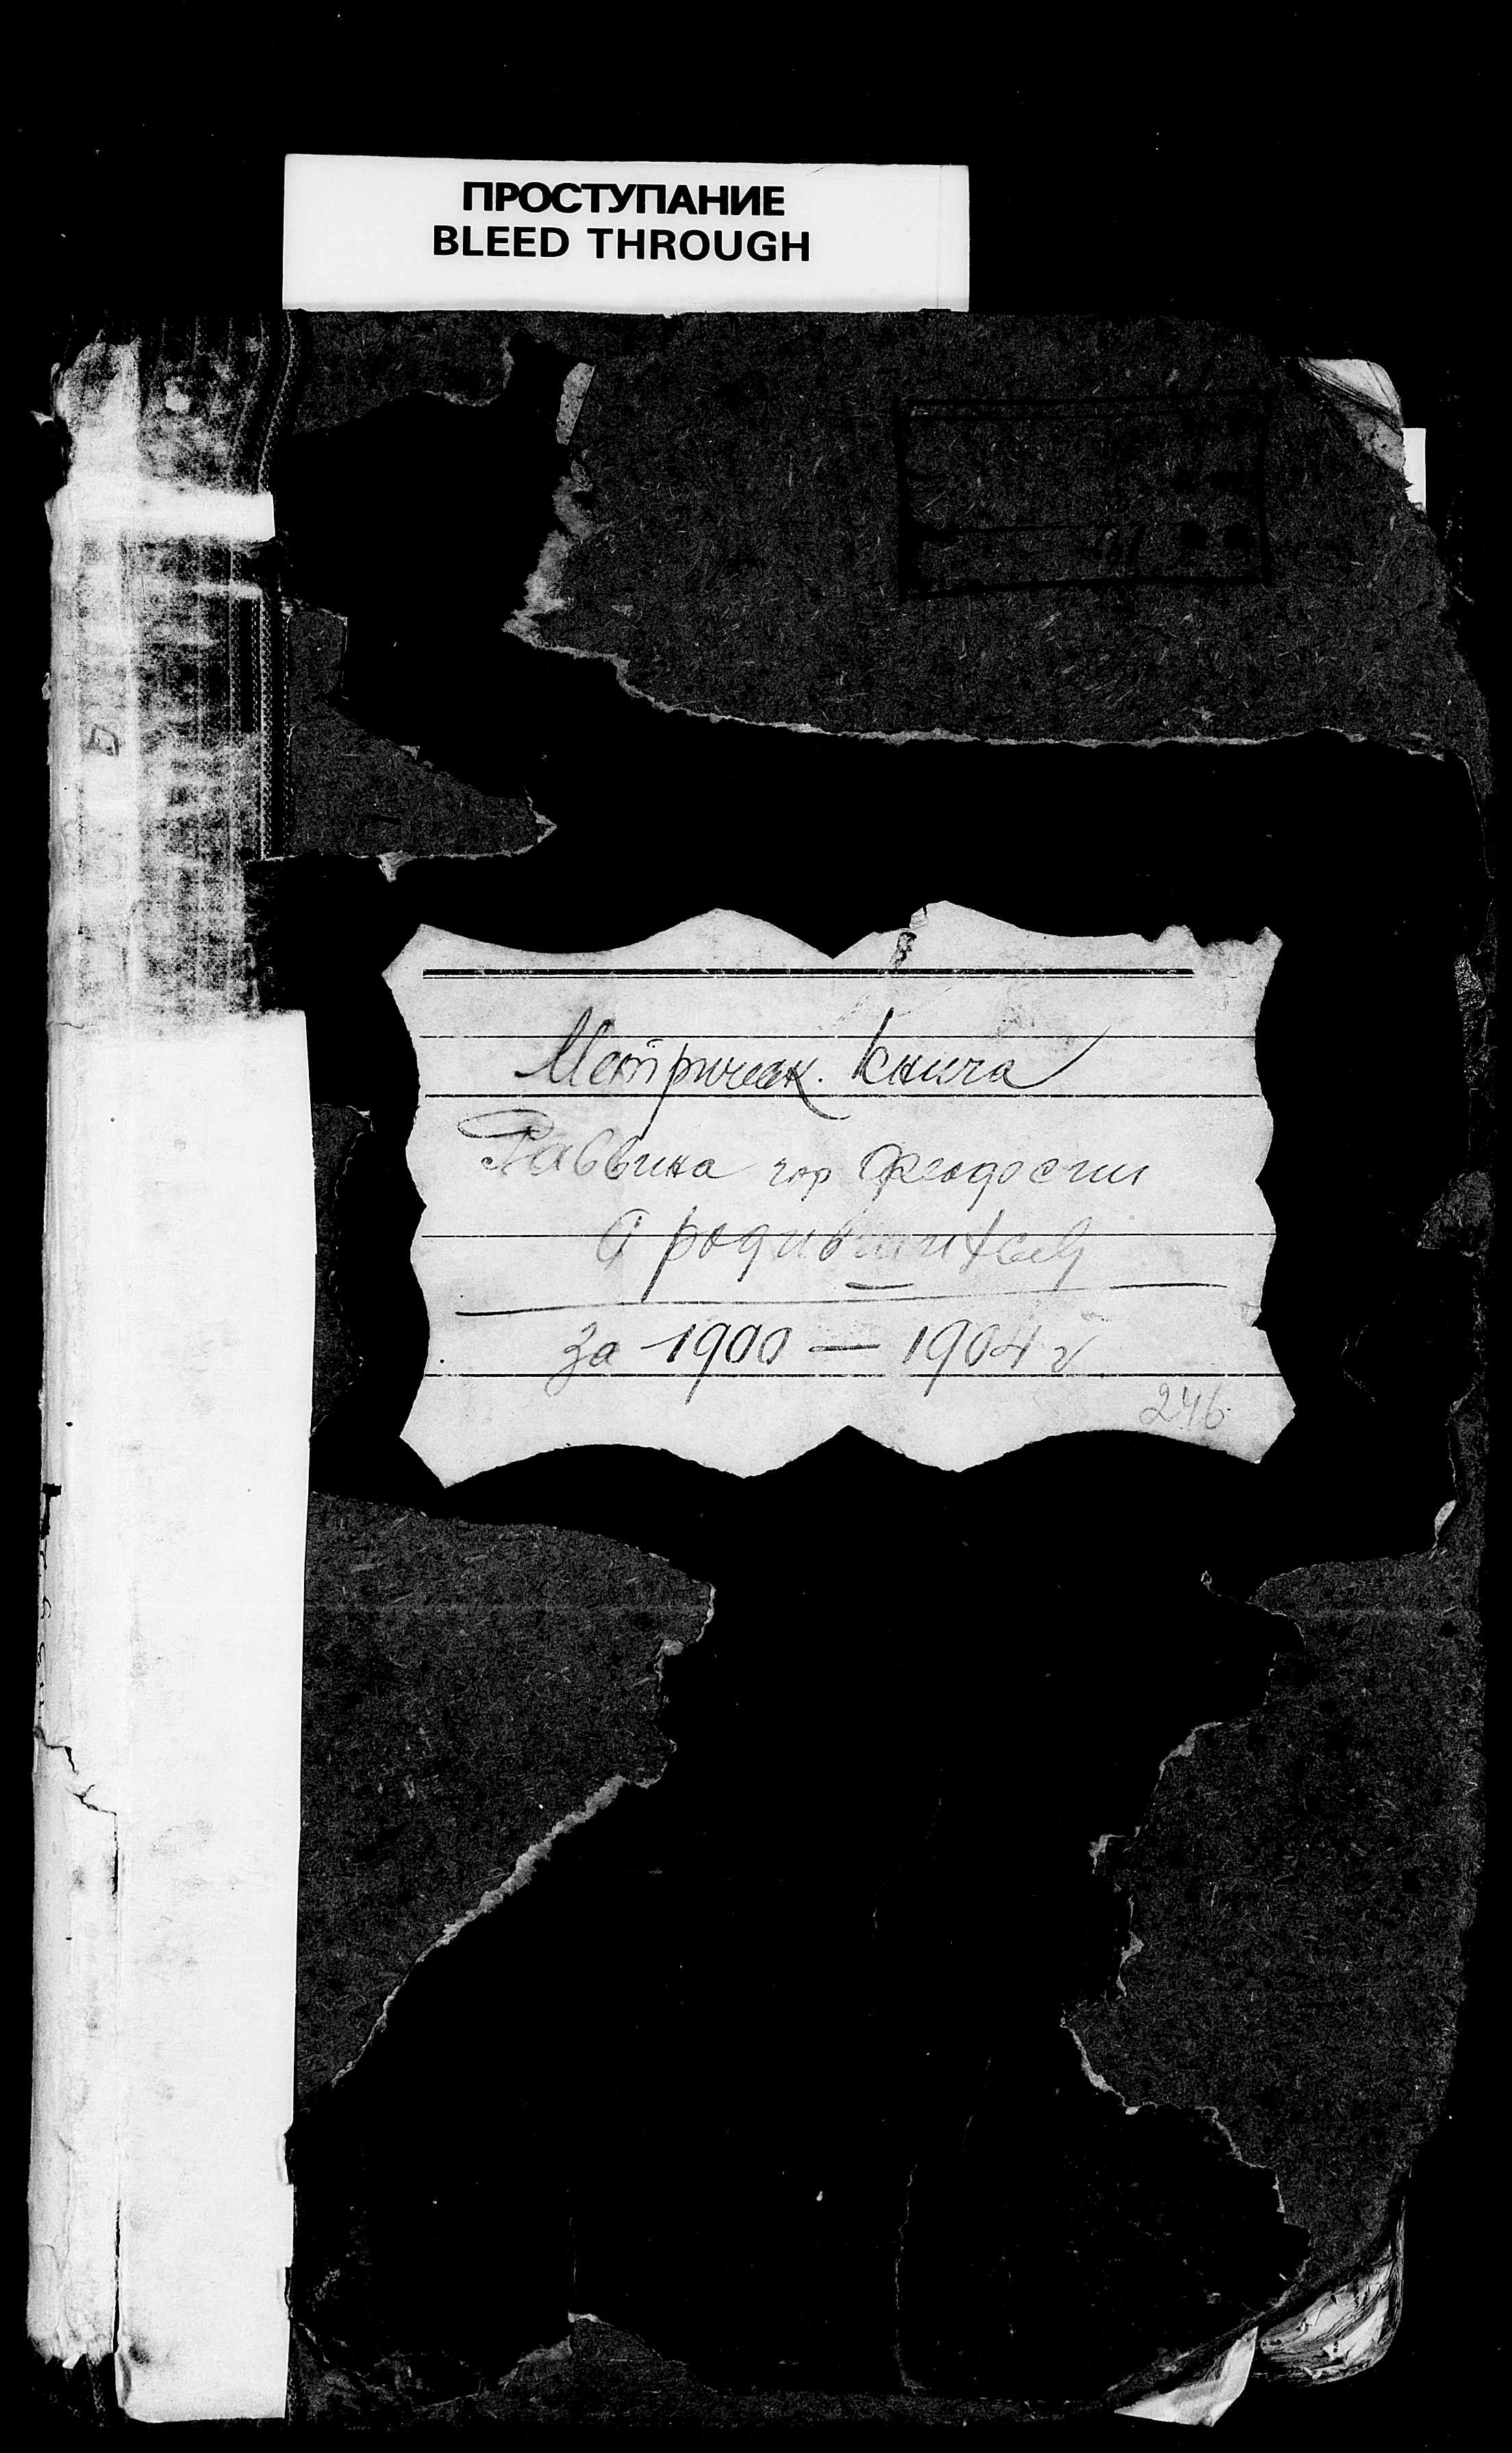 ПРОСТУПАНИЕ
BLEED THROUGH
Метрическ. книга
Раввина гор Феодосии
О родившихся
за 1900 — 1904 г
246